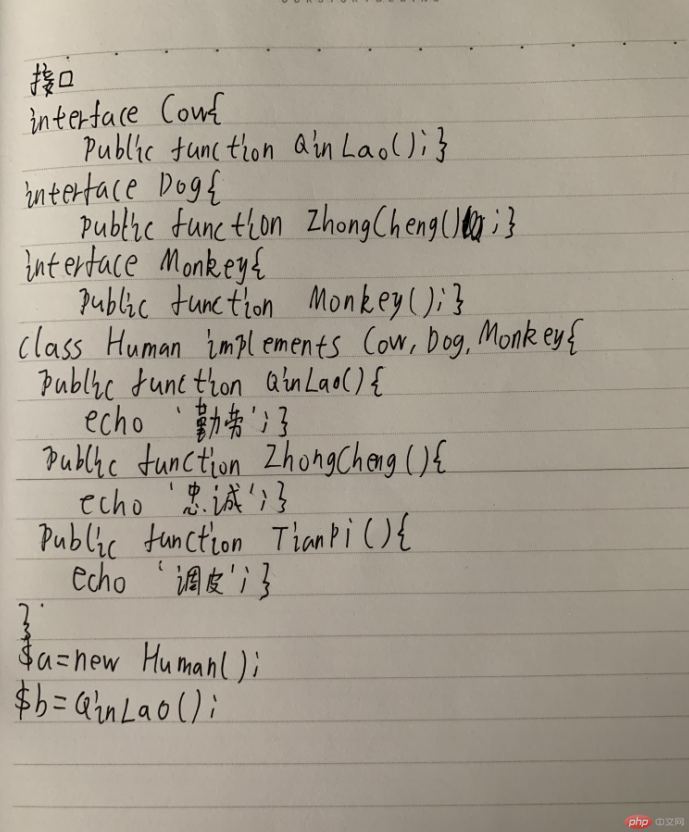 接口
interface Cow{
public function QinLao();}
interface Dog{
public function ZhongCheng();}
interface Monkey{
public function Monkey();}
class Human implements Cow, Dog, Monkey{
public function QinLao(){
echo '勤劳';}
public function ZhongCheng(){
echo '忠诚';}
public function TianPi(){
echo '调皮';}
}
$a=new Human();
$b=QinLao();
php 中文网